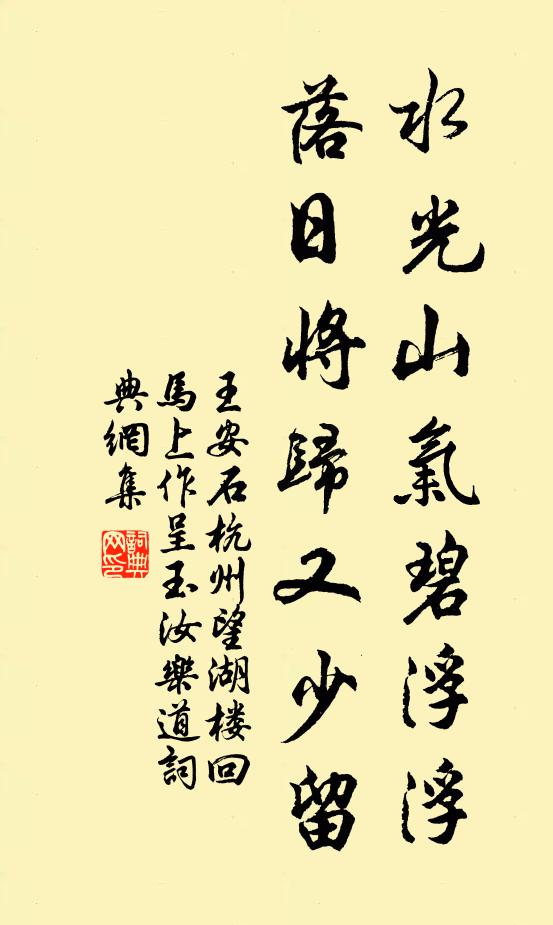 水光山氣碧浮浮
落日將歸又少留
王安石杭州望湖楼回
馬上作呈玉汝樂道詞
典網集
詞典网印